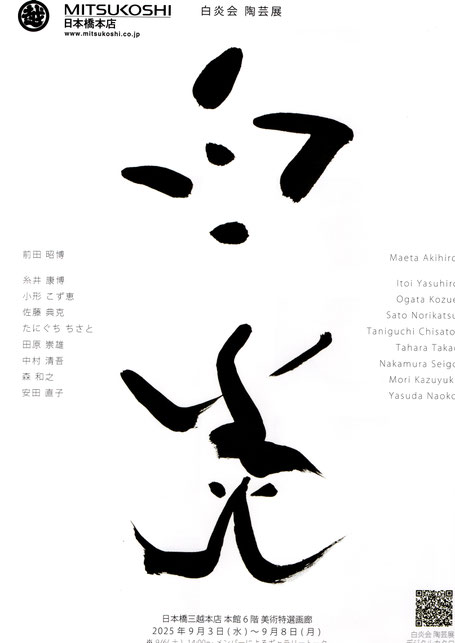 越
MITSUKOSHI
日本橋本店
www.mitsukoshi.co.jp
白炎会 陶芸展
白炎
前田 昭博
糸井 康博
小形 こず恵
佐藤 典克
たにぐち ちさと
田原 崇雄
中村 清吾
森 和之
安田 直子
Maeta Akihiro
Itoi Yasuhiro
Ogata Kozue
Sato Norikatsu
Taniguchi Chisato
Tahara Takao
Nakamura Seigo
Mori Kazuyuki
Yasuda Naoko
日本橋三越本店 本館6階 美術特選画廊
2025年9月3日(水)~9月8日(月)
白炎会 陶芸展